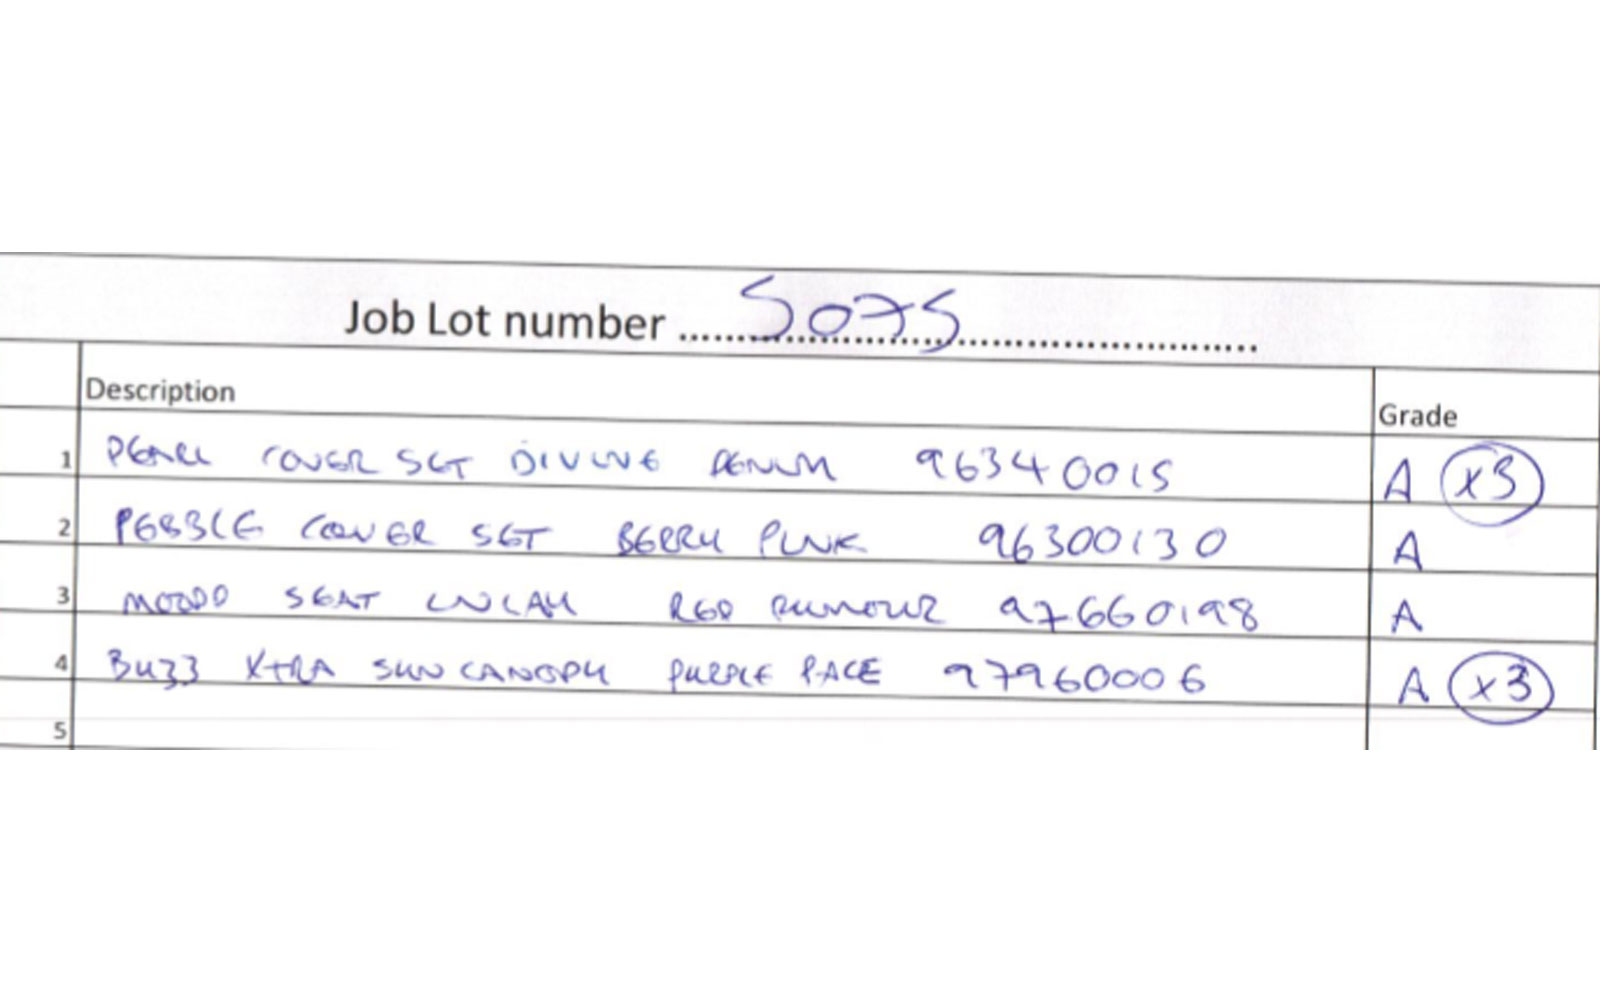 Job Lot number ........5075........
Description Grade
1 PEARL COVER SET DIVINE DENIM 96340015 A x3
2 PEBBLE COVER SET BERRY PINK 96300130 A
3 MOODD SEAT INLAY RED RUMOUR 97660198 A
4 BUZZ XTRA SUN CANOPY PURPLE PACE 97960006 A x3
5